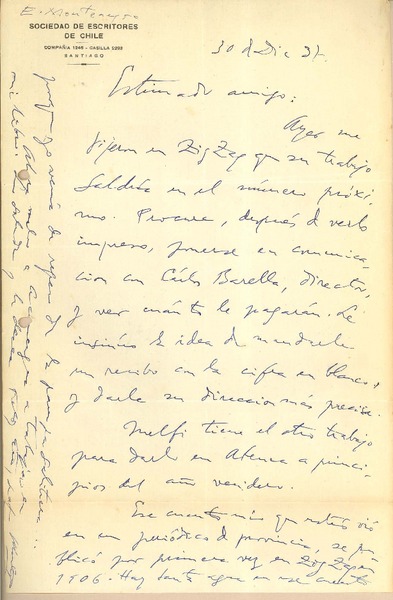 E. Montenegro
SOCIEDAD DE ESCRITORES
DE CHILE
COMPAÑIA 1246 - CASILLA 2292
SANTIAGO
30 d Dic 37.
Estimado amigo:
Ayer me
dijeron en ZigZag que su trabajo
saldría en el número próxi
mo. Procure, después d verlo
impreso, ponerse en comunica-
ción con Carlos Barella, director,
y ver cuánto le pagarán. Le
insinúo la idea de mandarle
un recibo con la cifra en blanco,
y darle su dirección más precisa.
Melfi tiene el otro trabajo
para darlo en Atenea a princi-
pios del año venidero.
Ese cuento mío que usted vió
en un periódico d provincia, se pu
blicó por primera vez en Zig Zag en
1906. Hay tanta agua en ese cuento
porque yo venía de regreso de la pampa salitrera...